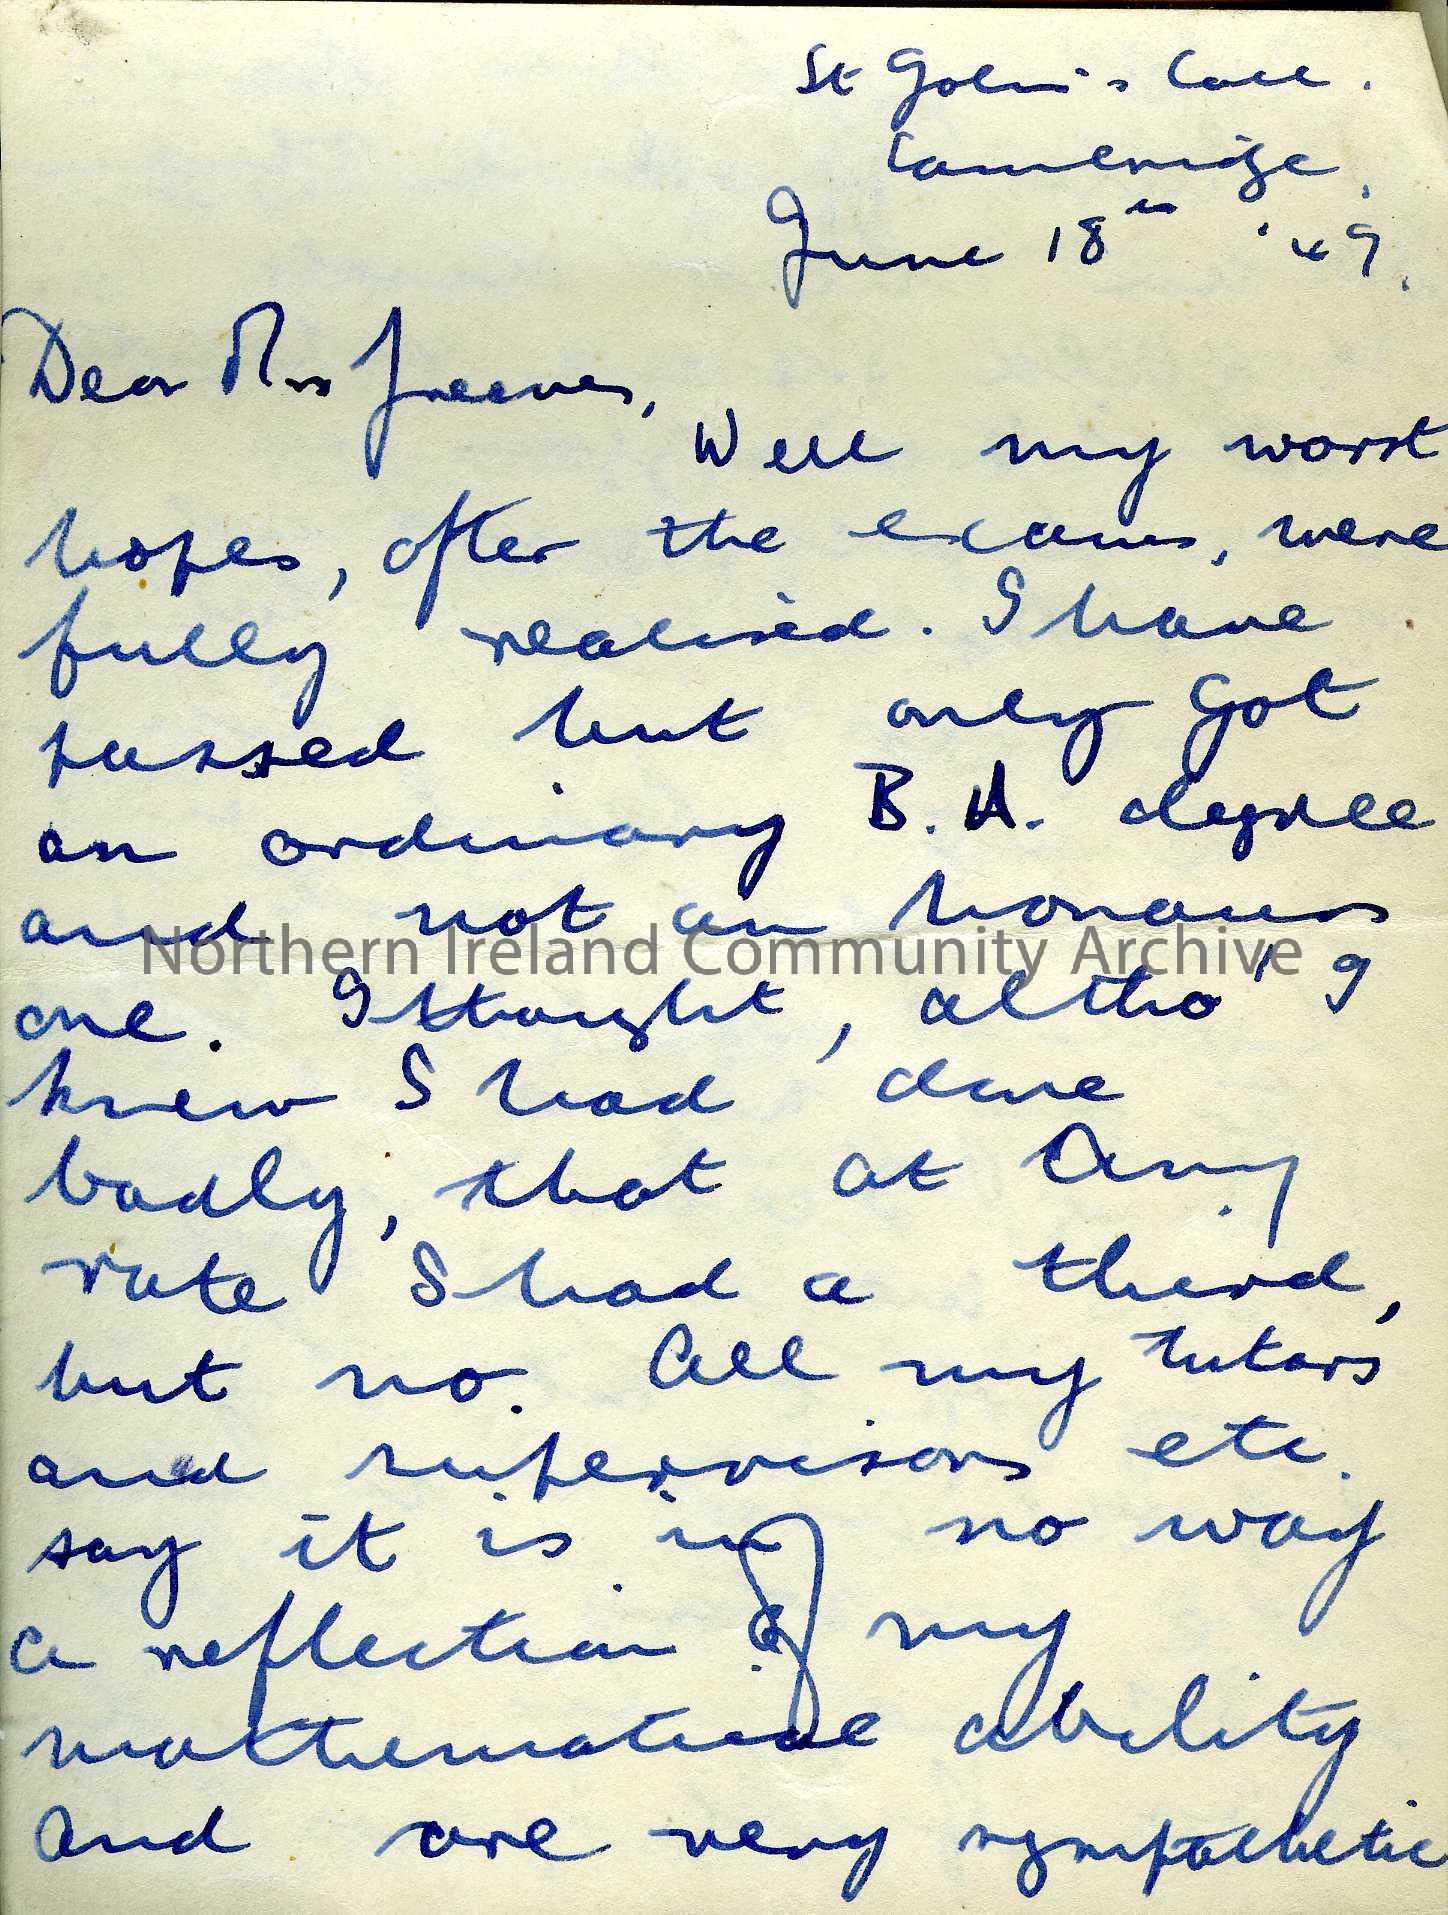 St John's Coll.
Cambridge,
June 18th '49.
Dear Mrs Greeves,
Well my worst
hopes, after the exams, were
fully realised. I have
passed but only got
an ordinary B.A. degree
and not an honours
Northern Ireland Community Archive
one. I thought, altho' I
knew I had done
badly, that at any
rate I had a third,
but no. All my tutors
and supervisors etc.
say it is in no way
a reflection of my
mathematical ability
and are very sympathetic